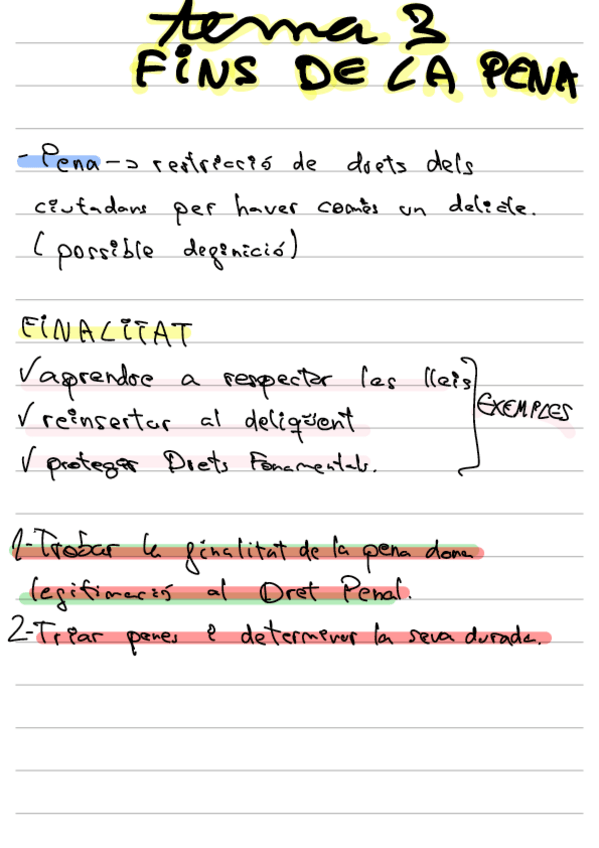 tema 3
FINS DE LA PENA
- Pena -> restricció de drets dels
ciutadans per haver comès un delicte.
(possible definició)
FINALITAT
√ aprendre a respectar les lleis
√ reinsertar al delinqüent
√ protegar Drets Fonamentals.
EXEMPLES
1- Trobar la finalitat de la pena dona
legitimació al Dret Penal.
2- Triar penes i determinar la seva durada.